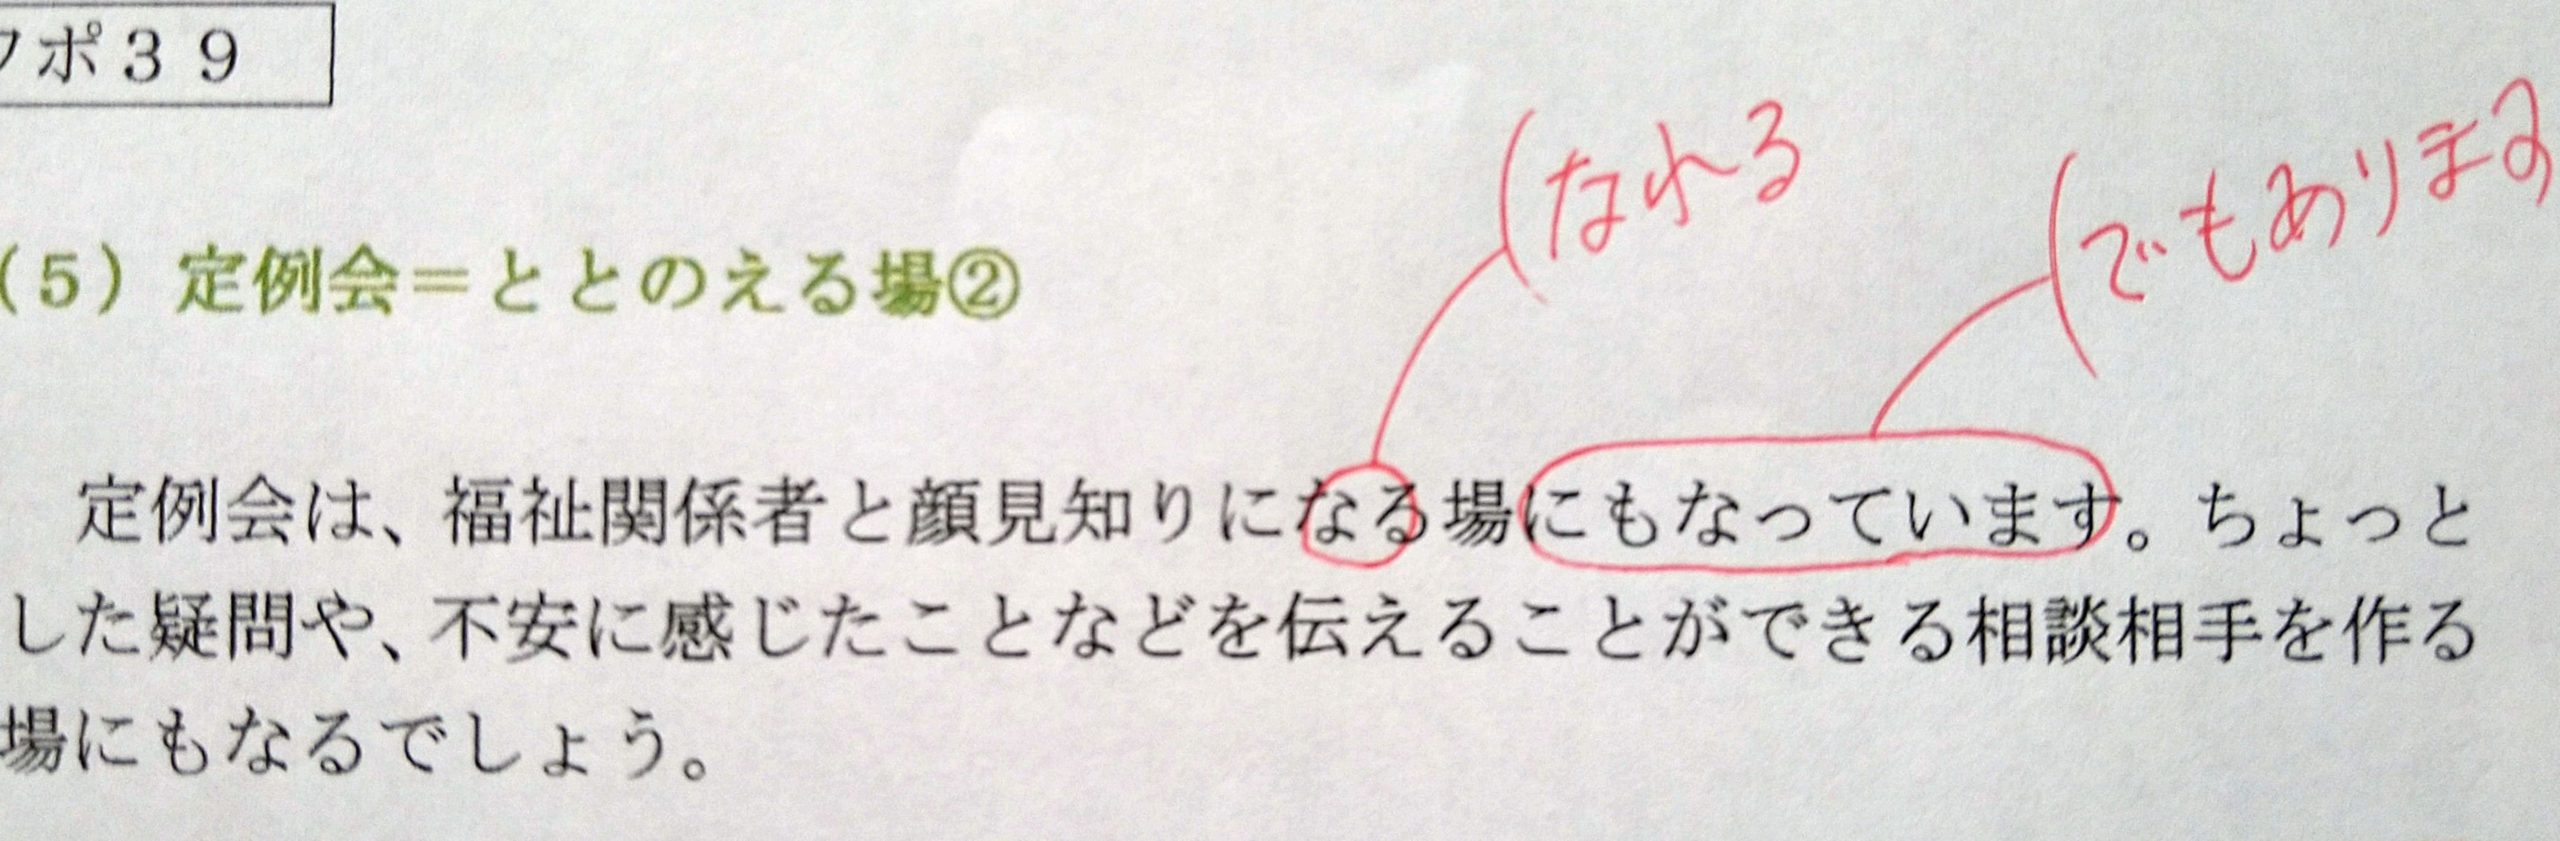 ポ３９
なれる
でもあります
（５）定例会＝ととのえる場②
定例会は、福祉関係者と顔見知りになる場にもなっています。ちょっと
した疑問や、不安に感じたことなどを伝えることができる相談相手を作る
場にもなるでしょう。